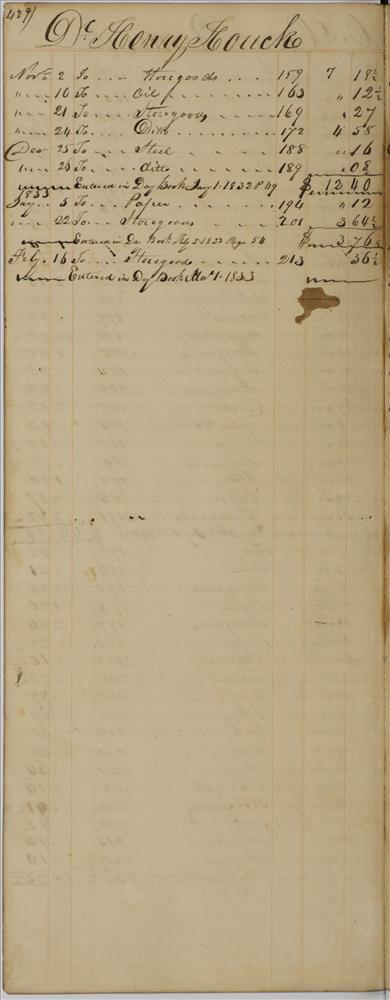 429)
Dr Henry Houck
Novr 2 To .... Storegoods ... 159 7 18½
" 10 To .... Oil ........ 163 " 12½
" 21 To .... Storegoods .... 169 " 27
" 24 To .... Ditto ........ 172 4 58
Dec 25 To .... Steel ........ 188 " 16
" 28 To .... ditto ........ 189 " 08
Entered in Day Book Jany 1. 1832 P 49 $ 12 40
1833
Jany. 5 To .... Paper ........ 194 " 12
" 22 To .... Storegoods .... 201 3 64½
Entered in Da Book Feby 5 1833 Page 54 $ 3 76½
Feby. 16 To .... Storegoods .... 213 36½
Entered in Day Book Mar 1. 1833